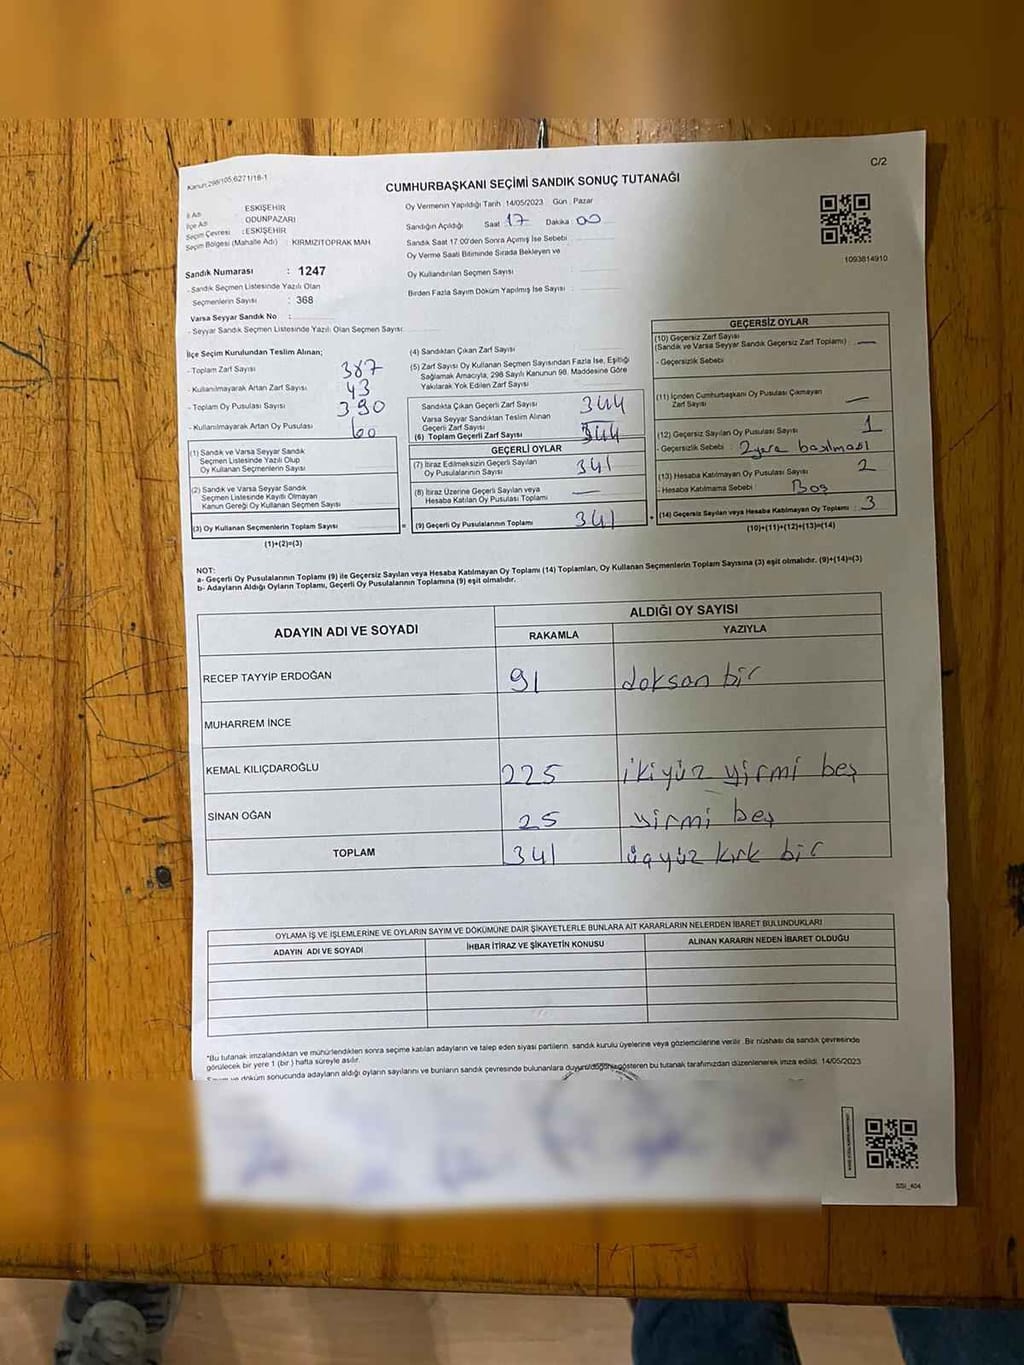 Kanun:298/105,6271/18-1
C/2
CUMHURBAŞKANI SEÇİMİ SANDIK SONUÇ TUTANAĞI
İl Adı : ESKİŞEHİR
İlçe Adı : ODUNPAZARI
Seçim Çevresi : ESKİŞEHİR
Seçim Bölgesi (Mahalle Adı) : KIRMIZITOPRAK MAH
Sandık Numarası : 1247
- Sandık Seçmen Listesinde Yazılı Olan
Seçmenlerin Sayısı : 368
Varsa Seyyar Sandık No :
- Seyyar Sandık Seçmen Listesinde Yazılı Olan Seçmen Sayısı:
Oy Vermenin Yapıldığı Tarih :14/05/2023 Gün : Pazar
Sandığın Açıldığı Saat : 17 Dakika : 00
Sandık Saat 17:00'den Sonra Açımış İse Sebebi :
Oy Verme Saati Bitiminde Sırada Bekleyen ve
Oy Kullandırılan Seçmen Sayısı :
Birden Fazla Sayım Döküm Yapılmış İse Sayısı :
1093814910
İlçe Seçim Kurulundan Teslim Alınan;
- Toplam Zarf Sayısı : 387
- Kullanılmayarak Artan Zarf Sayısı : 43
- Toplam Oy Pusulası Sayısı : 390
- Kullanılmayarak Artan Oy Pusulası : 60
(1) Sandık ve Varsa Seyyar Sandık
Seçmen Listesinde Yazılı Olup
Oy Kullanan Seçmenlerin Sayısı
(2) Sandık ve Varsa Seyyar Sandık
Seçmen Listesinde Kayıtlı Olmayan
Kanun Gereği Oy Kullanan Seçmen Sayısı
(3) Oy Kullanan Seçmenlerin Toplam Sayısı
(1)+(2)=(3)
(4) Sandıktan Çıkan Zarf Sayısı
(5) Zarf Sayısı Oy Kullanan Seçmen Sayısından Fazla İse, Eşitliği
Sağlamak Amacıyla, 298 Sayılı Kanunun 98. Maddesine Göre
Yakılarak Yok Edilen Zarf Sayısı
Sandıkta Çıkan Geçerli Zarf Sayısı : 344
Varsa Seyyar Sandıktan Teslim Alınan
Geçerli Zarf Sayısı :
(6) Toplam Geçerli Zarf Sayısı : 344
GEÇERLİ OYLAR
(7) İtiraz Edilmeksizin Geçerli Sayılan
Oy Pusulalarının Sayısı : 341
(8) İtiraz Üzerine Geçerli Sayılan veya
Hesaba Katılan Oy Pusulası Toplamı : —
= (9) Geçerli Oy Pusulalarının Toplamı : 341
GEÇERSİZ OYLAR
(10) Geçersiz Zarf Sayısı
(Sandık ve Varsa Seyyar Sandık Geçersiz Zarf Toplamı) : —
- Geçersizlik Sebebi :
(11) İçinden Cumhurbaşkanı Oy Pusulası Çıkmayan
Zarf Sayısı : —
(12) Geçersiz Sayılan Oy Pusulası Sayısı : 1
- Geçersizlik Sebebi : 2 yere basılması
(13) Hesaba Katılmayan Oy Pusulası Sayısı : 2
- Hesaba Katılmama Sebebi : Boş
+ (14) Geçersiz Sayılan veya Hesaba Katılmayan Oy Toplamı : 3
(10)+(11)+(12)+(13)=(14)
NOT:
a- Geçerli Oy Pusulalarının Toplamı (9) ile Geçersiz Sayılan veya Hesaba Katılmayan Oy Toplamı (14) Toplamları, Oy Kullanan Seçmenlerin Toplam Sayısına (3) eşit olmalıdır. (9)+(14)=(3)
b- Adayların Aldığı Oyların Toplamı, Geçerli Oy Pusulalarının Toplamına (9) eşit olmalıdır.
ADAYIN ADI VE SOYADI
ALDIĞI OY SAYISI
RAKAMLA YAZIYLA
RECEP TAYYİP ERDOĞAN 91 doksan bir
MUHARREM İNCE
KEMAL KILIÇDAROĞLU 225 ikiyüz yirmi beş
SİNAN OĞAN 25 yirmi beş
TOPLAM 341 üçyüz kırk bir
OYLAMA İŞ VE İŞLEMLERİNE VE OYLARIN SAYIM VE DÖKÜMÜNE DAİR ŞİKAYETLERLE BUNLARA AİT KARARLARIN NELERDEN İBARET BULUNDUKLARI
ADAYIN ADI VE SOYADI İHBAR İTİRAZ VE ŞİKAYETİN KONUSU ALINAN KARARIN NEDEN İBARET OLDUĞU
*Bu tutanak imzalandıktan ve mühürlendikten sonra seçime katılan adayların ve talep eden siyasi partilerin sandık kurulu üyelerine veya gözlemcilerine verilir. Bir nüshası da sandık çevresinde
görülecek bir yere 1 (bir ) hafta süreyle asılır.
ve döküm sonucunda adayların aldığı oyların sayılarını ve bunların sandık çevresinde bulunanlara duyurulduğunu gösteren bu tutanak tarafımızdan düzenlenerek imza edildi. 14/05/2023
SSI_404